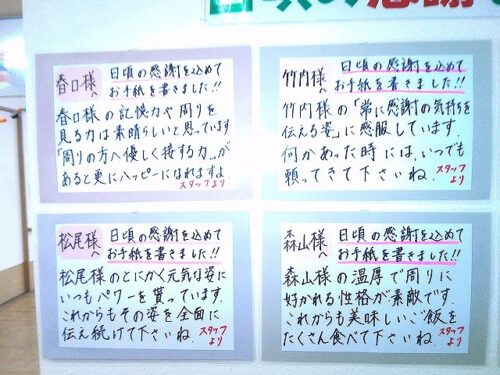 の感謝
春口様へ
日頃の感謝を込めて
お手紙を書きました!!
春口様の記憶力や周りを
見る力は素晴らしいと思っています。
「周りの方へ優しく接する力」が
あると更にハッピーになれますよ。
スタッフより
竹内様へ
日頃の感謝を込めて
お手紙を書きました!!
竹内様の「常に感謝の気持を
伝える姿」に感服しています。
何かあった時には、いつでも
頼ってきて下さいね。
スタッフより
松尾様へ
日頃の感謝を込めて
お手紙を書きました!!
松尾様のとにかく元気な姿に
いつもパワーを貰っています。
これからもその姿を全面に
伝え続けて下さいね。
スタッフより
森山様へ
日頃の感謝を込めて
お手紙を書きました!!
森山様の温厚で周りに
好かれる性格が素敵です。
これからも美味しいご飯を
たくさん食べて下さいね。
スタッフより